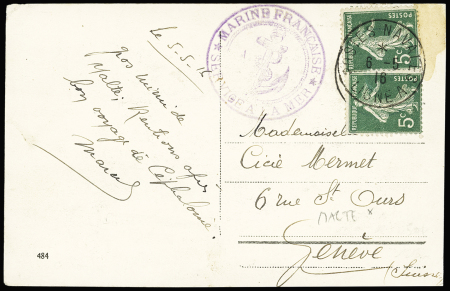 Le 5-5-16
gros mimi de
Malte; Rentrons après
bon voyage de Céphalonie.
Marcel
MARINE FRANÇAISE
SERVICE A LA MER
POSTES
5c
POSTES
5c
Mademoiselle
Cicié Mermet
6 rue St Ours
MALTE x
Genève
(Suisse)
484